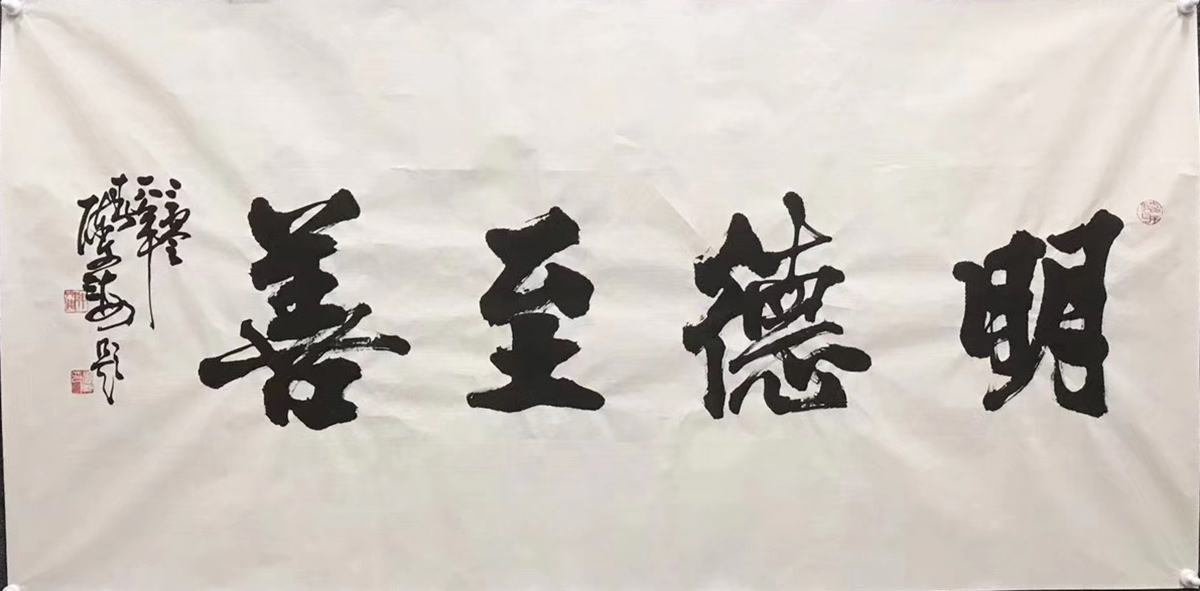 明德至善
題